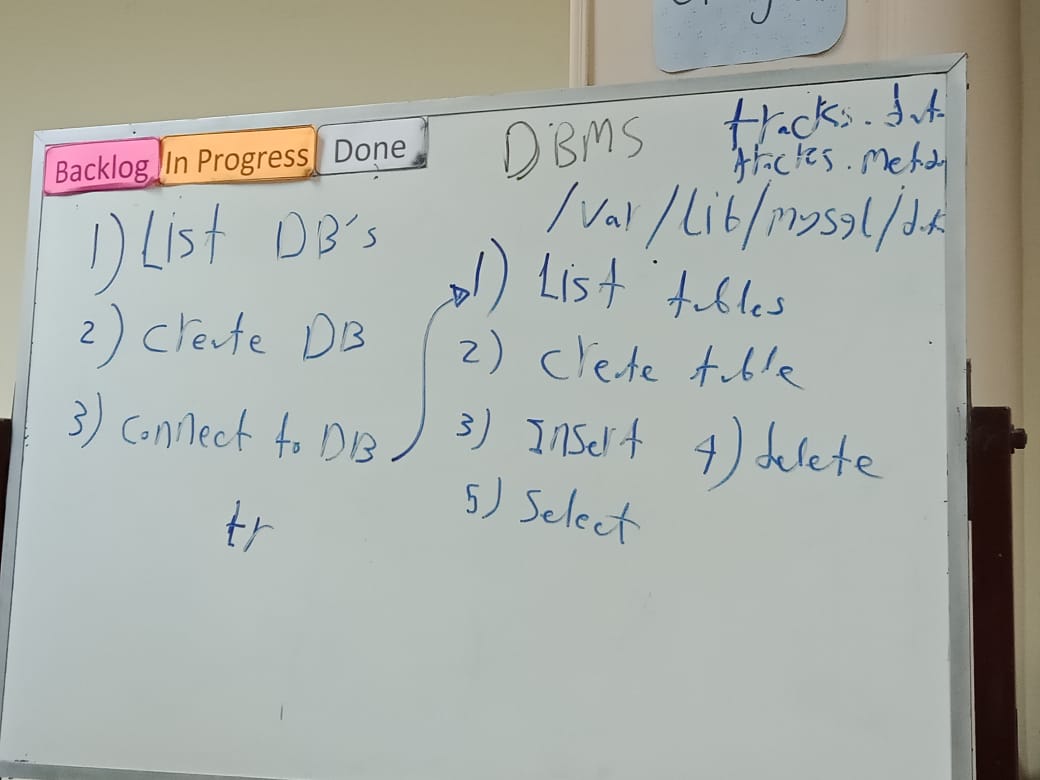 Backlog In Progress Done
DBMS
tracks.dat
tracks.meta
/var/lib/mysql/dat
1) List DB's
2) Create DB
3) Connect to DB
tr
1) List tables
2) Crete table
3) Insert 4) delete
5) Select